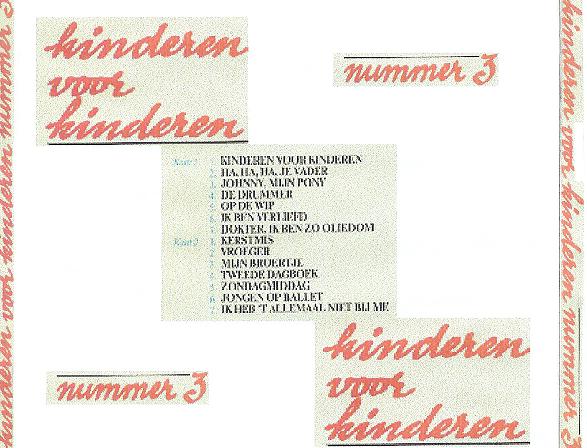 kinderen
voor
kinderen
nummer 3
Kant 1
1. KINDEREN VOOR KINDEREN
2. HA, HA, HA, JE VADER
3. JOHNNY, MIJN PONY
4. DE DRUMMER
5. OP DE WIP
6. IK BEN VERLIEFD
7. DOKTER, IK BEN ZO OLIEDOM
Kant 2
1. KERSTMIS
2. VROEGER
3. MIJN BROERTJE
4. TWEEDE DAGBOEK
5. ZONDAGMIDDAG
6. JONGEN OP BALLET
7. IK HEB 'T ALLEMAAL NIET BIJ ME
nummer 3
kinderen
voor
kinderen
kinderen voor kinderen nummer 3
kinderen voor kinderen nummer 3